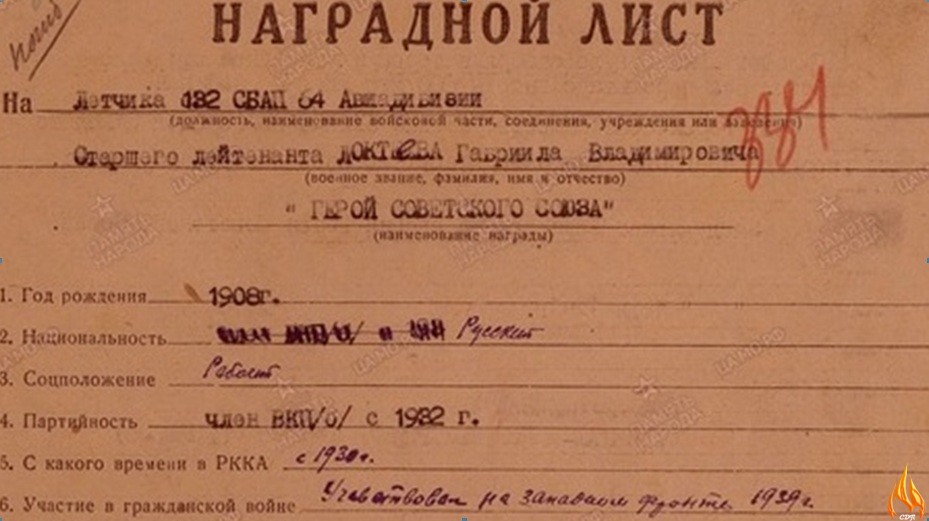 погиб
НАГРАДНОЙ ЛИСТ
На Летчика 132 СБАП 64 Авиадивизии
(должность, наименование войсковой части, соединения, учреждения или заведения)
881
Старшего лейтенанта ЛОКТЕВА Гавриила Владимировича
(военное звание, фамилия, имя и отчество)
" ГЕРОЙ СОВЕТСКОГО СОЮЗА"
(наименование награды)
1. Год рождения 1908г.
2. Национальность Русский
3. Соцположение Рабочий
4. Партийность член ВКП/б/ с 1932 г.
5. С какого времени в РККА с 1930г.
6. Участие в гражданской войне Участвовал на западном фронте 1939г.
ПАМЯТЬ НАРОДА
ЦАМО.РФ
СДП